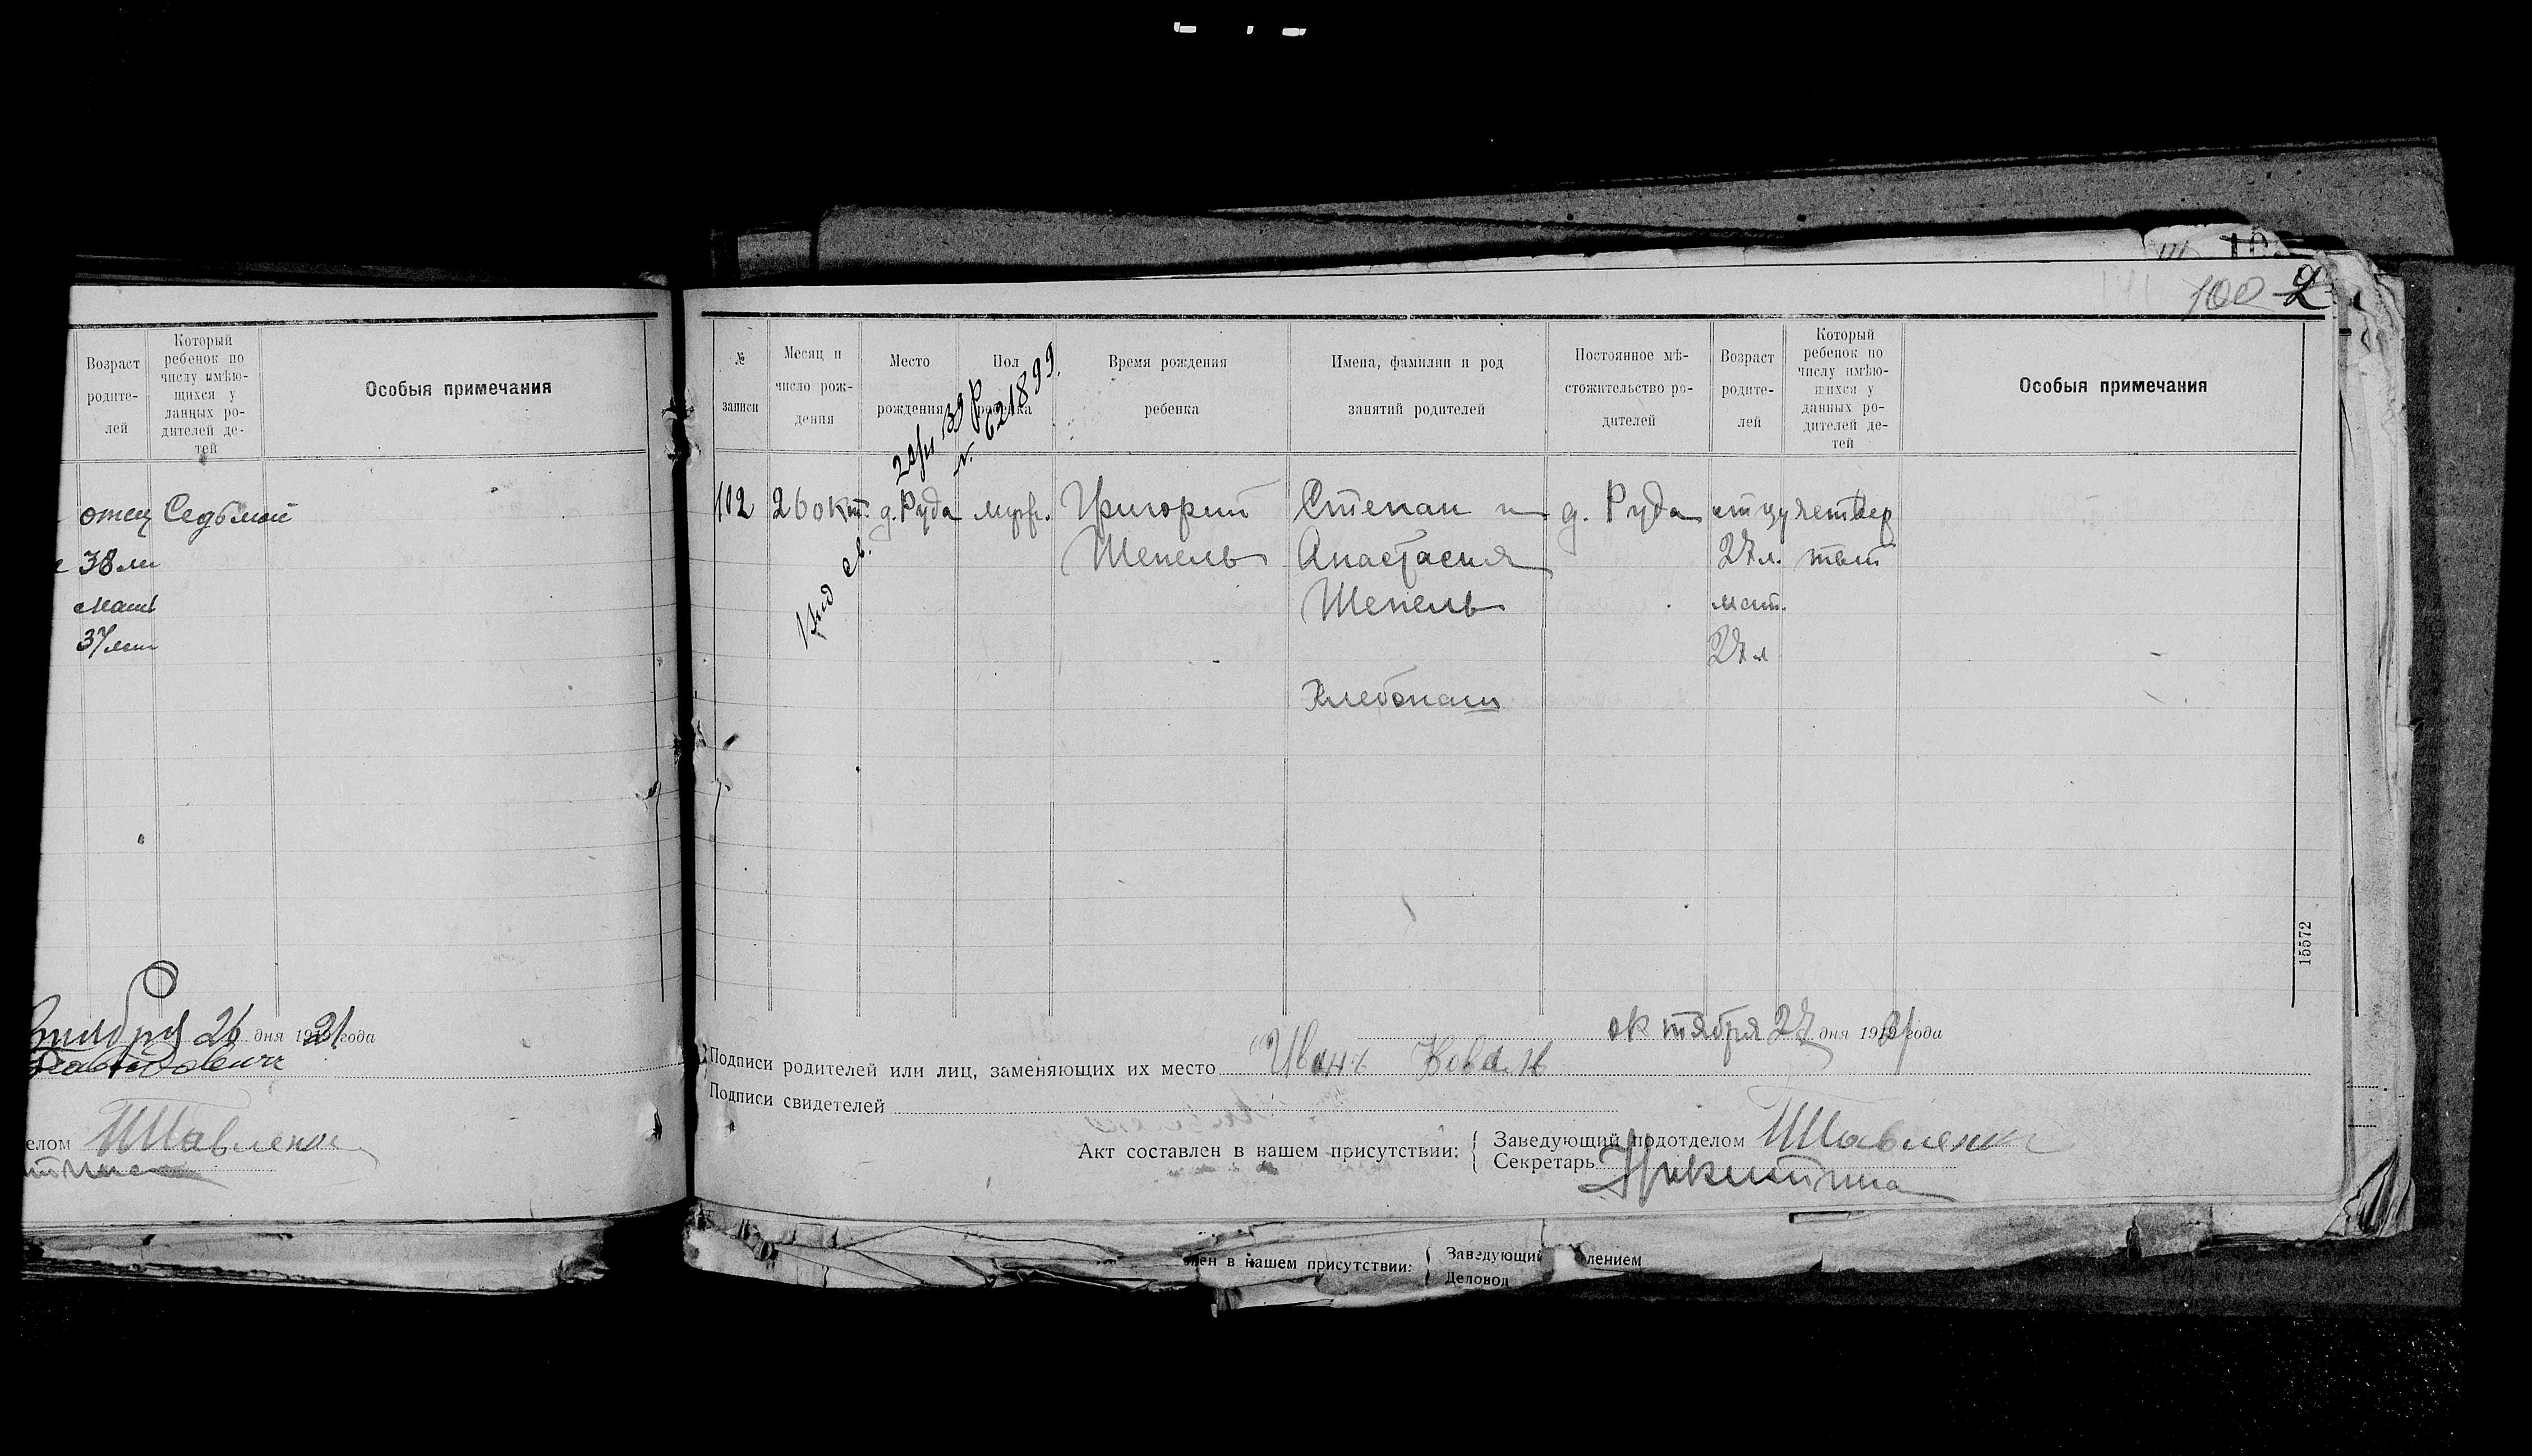 100 2
Возраст
родите-
лей
Который
ребенок по
числу имѣю-
щихся у
данных ро-
дителей де-
тей
Особыя примечания
отец Седьмой
38 ли
мать
37 лет
26 дня 1921 года
Давидович
елом Шавленко
№
записи
Месяц и
число рож-
дения
Место
рождения
Пол
ребенка
Время рождения
ребенка
Имена, фамилии и род
занятий родителей
Постоянное мѣ-
стожительство ро-
дителей
Возраст
родите-
лей
Который
ребенок по
числу имѣю-
щихся у
данных ро-
дителей де-
тей
Особыя примечания
621899.
102 26 окт. д. Руда муж. Григорий Степан и д. Руда отцу четвер
Шепель Анастасия 27 л. тый
Шепель мат.
27 л
Хлебопаш
15572
октября 27 дня 1921 года
Подписи родителей или лиц, заменяющих их место Иванъ Коваль
Подписи свидетелей
Акт составлен в нашем присутствии: { Заведующий подотделом Шавленко
Секретарь Никитина
лен в нашем присутствии: { Заведующий лением
Деловод